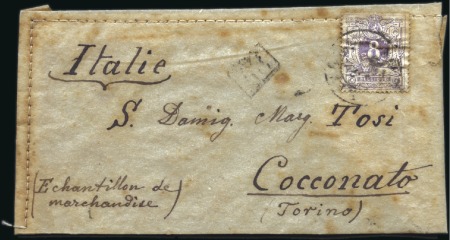 Italie
8
S. Damig. Marg. Tosi
(Echantillon de
marchandise)
Cocconato
(Torino)